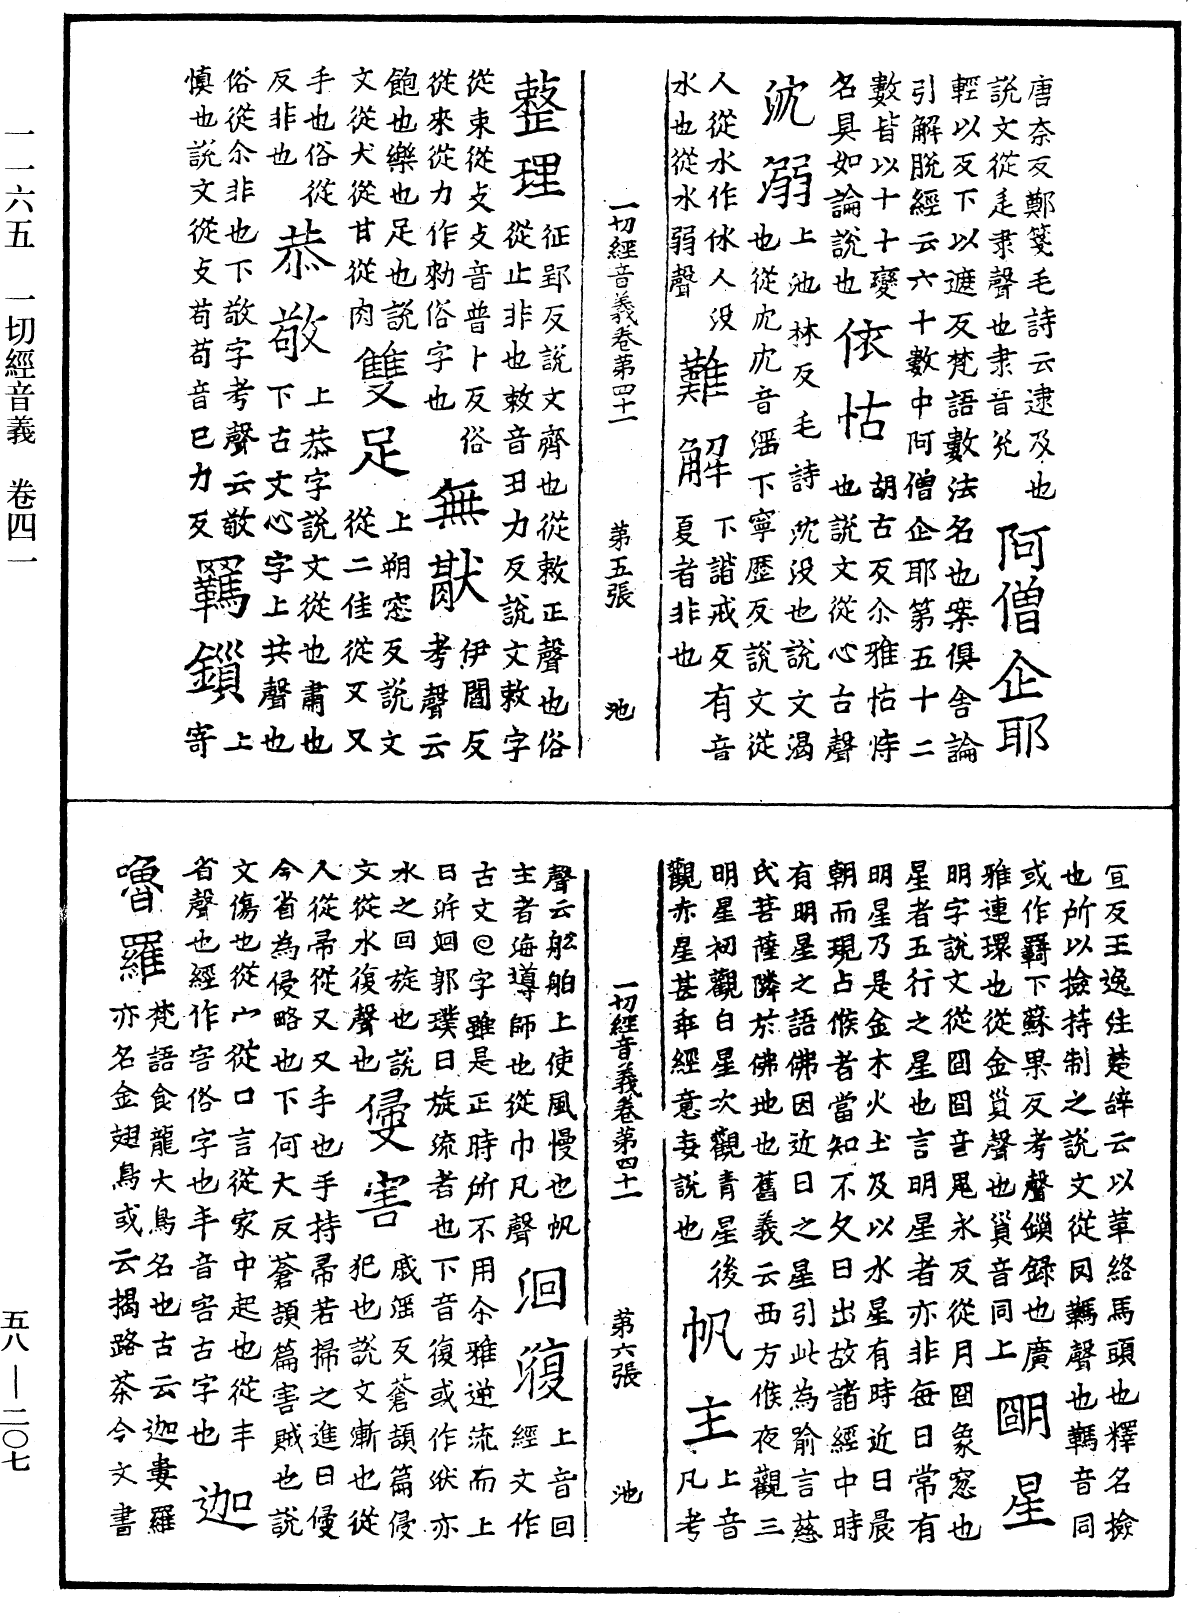 一一六五 一切經音義 卷四一
五八—二〇七
唐奈反鄭箋毛詩云逮及也
說文從辵隶聲也隶音㳄
阿僧企耶
輕以反下以遮反梵語數法名也案俱舍論
引解脫經云六十數中阿僧企耶第五十二
數皆以十十變
名具如論說也
依怙
胡古反尒雅怙恃
也說文從心古聲
沈溺
上池林反毛詩沈没也說文濁
也從冘冘音滛下寧歷反說文從
人從水作㲻人没
水也從水弱聲
難解
下諧戒反有音
夏者非也
一切經音義卷第四十一 第五張 池
整理
征郢反說文齊也從敕正聲也俗
從止非也敕音丑力反說文敕字
從束從攴攴音普卜反俗
從來從力作勑俗字也
無猒
伊閻反
考聲云
飽也樂也足也說文
文從犬從甘從肉
雙足
上朔窓反說文
從二隹從又又
手也俗從
反非也
恭敬
上恭字說文從也肅也
下古文心字上共聲也
俗從尒非也下敬字考聲云敬
慎也說文從攴茍茍音巳力反
羈鎖
上
寄
宜反王逸注楚辭云以革絡馬頭也釋名撿
也所以撿持制之說文從罔馽聲也馽音同
或作羇下蘇果反考聲鎖録也廣
雅連環也從金𧴪聲也𧴪音同上
朙星
明字說文從囧囧音鬼永反從月囧象窓也
星者五行之星也言明星者亦非每日常有
明星乃是金木火土及以水星有時近日晨
朝而現占候者當知不久日出故諸經中時
有明星之語佛因近日之星引此為喻言慈
氏菩薩隣於佛地也舊義云西方候夜觀三
明星初觀白星次觀青星後
觀赤星甚乖經意妄說也
帆主
上音
凡考
一切經音義卷第四十一 第六張 池
聲云舩舶上使風慢也帆
主者海導師也從巾凡聲
洄澓
上音回
經文作
古文@字雖是正時所不用尒雅逆流而上
曰泝洄郭璞曰旋流者也下音復或作洑亦
水之回旋也說
文從水復聲也
侵害
戚滛反蒼頡篇侵
犯也說文漸也從
人從帚從又又手也手持帚若掃之進曰侵
今省為侵略也下何大反蒼頡篇害賊也說
文傷也從宀從口言從家中起也從丰
省聲也經作害俗字也丰音害古字也
迦
嚕羅
梵語食龍大鳥名也古云迦婁羅
亦名金翅鳥或云揭路荼今文書